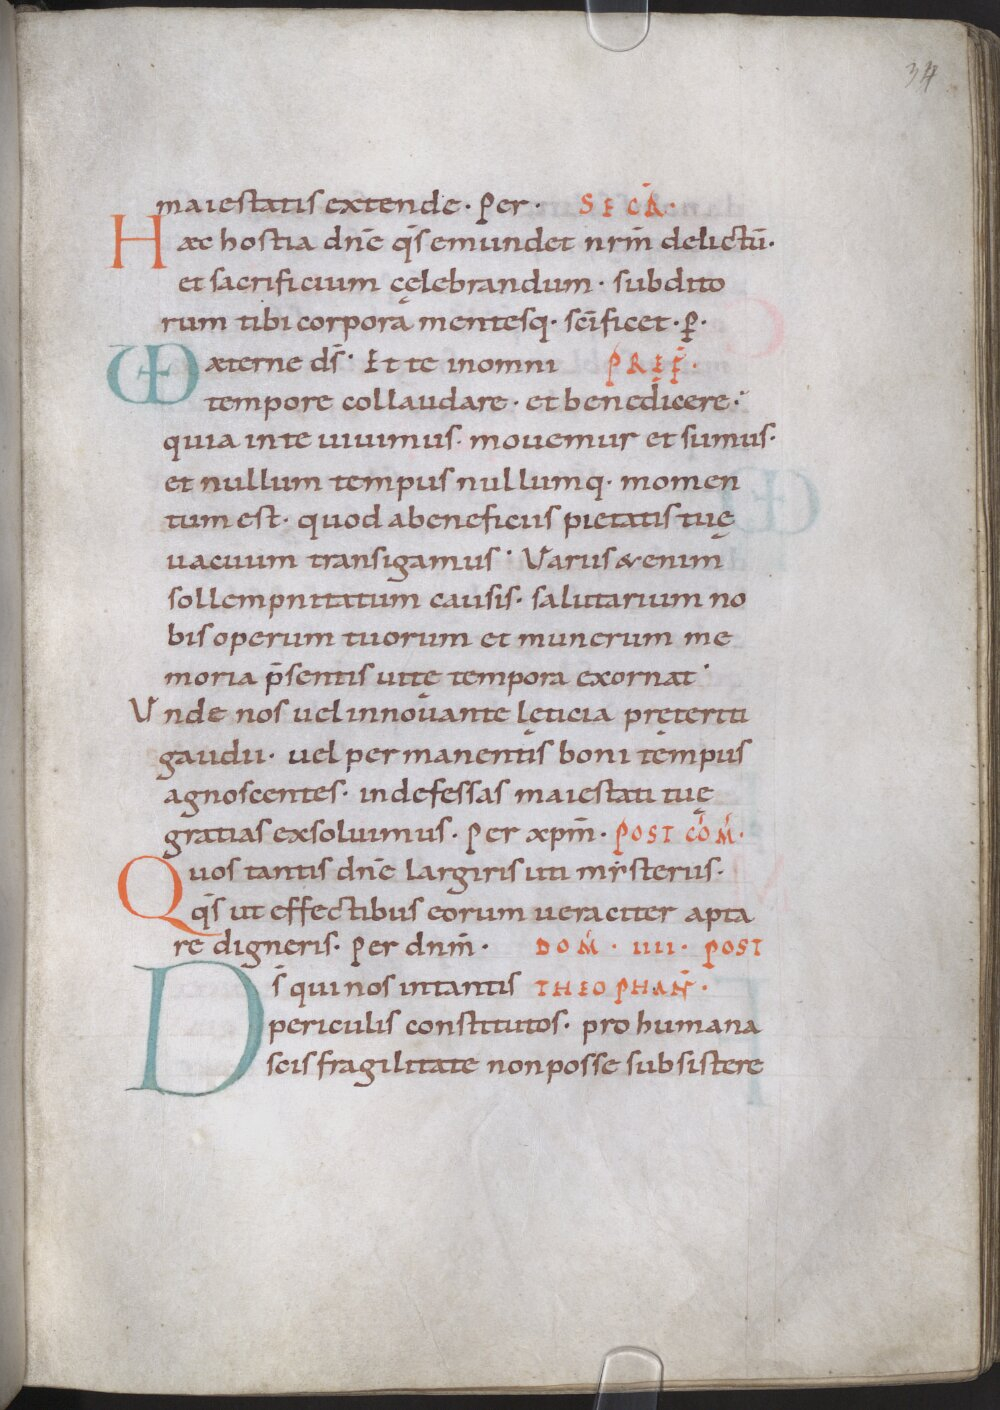 34
maiestatis extende · Per · SECR̄·
Haec hostia dn̄e q̄s emundet nr̄m delictū·
et sacrificium cęlebrandum · subdito
rum tibi corpora mentesq· sc̄ificet · p̄·
VD aeterne ds̄· Et te in omni PREF̄·
tempore collaudare · et benedicere ·
quia in te uiuimus · mouemur et sumus·
et nullum tempus nullumq· momen
tum est · quod a beneficiis pietatis tuę
uacuum transigamus · Variis & enim
sollempnitatum causis · salutarium no
bis operum tuorum et munerum me
moria p̄sentis uitę tempora exornat ·
Vnde nos uel innouante lęticia pręteriti
gaudii · uel permanentis boni tempus
agnoscentes · indefessas maiestati tuę
gratias exsoluimus · Per xp̄m · POST CŌM̄·
Quos tantis dn̄e largiris uti mysteriis·
q̄s ut effectibus eorum ueraciter apta
re digneris · Per dnm̄ · DOM̄ · IIII · POST
Ds̄ qui nos in tantis THEOPHAN̄ ·
periculis constitutos · pro humana
scis fragilitate non posse subsistere